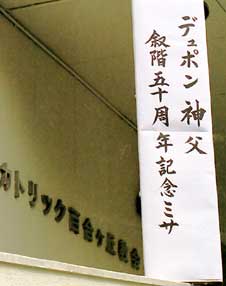 デュポン神父
叙階五十周年記念ミサ
カトリック百合ヶ丘教会